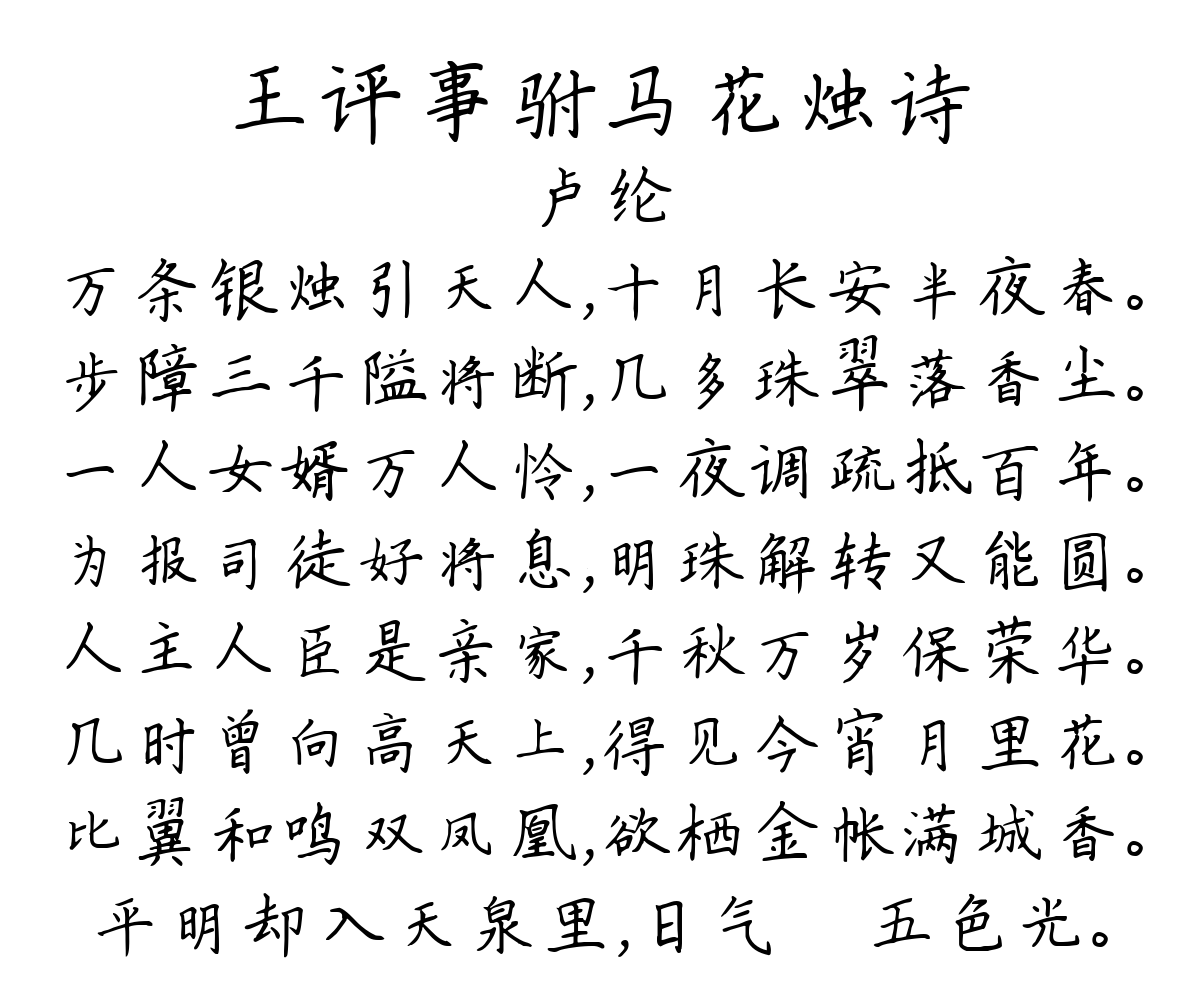 王评事驸马花烛诗
卢纶
万条银烛引天人,十月长安半夜春。
步障三千隘将断,几多珠翠落香尘。
一人女婿万人怜,一夜调疏抵百年。
为报司徒好将息,明珠解转又能圆。
人主人臣是亲家,千秋万岁保荣华。
几时曾向高天上,得见今宵月里花。
比翼和鸣双凤凰,欲栖金帐满城香。
平明却入天泉里,日气 五色光。